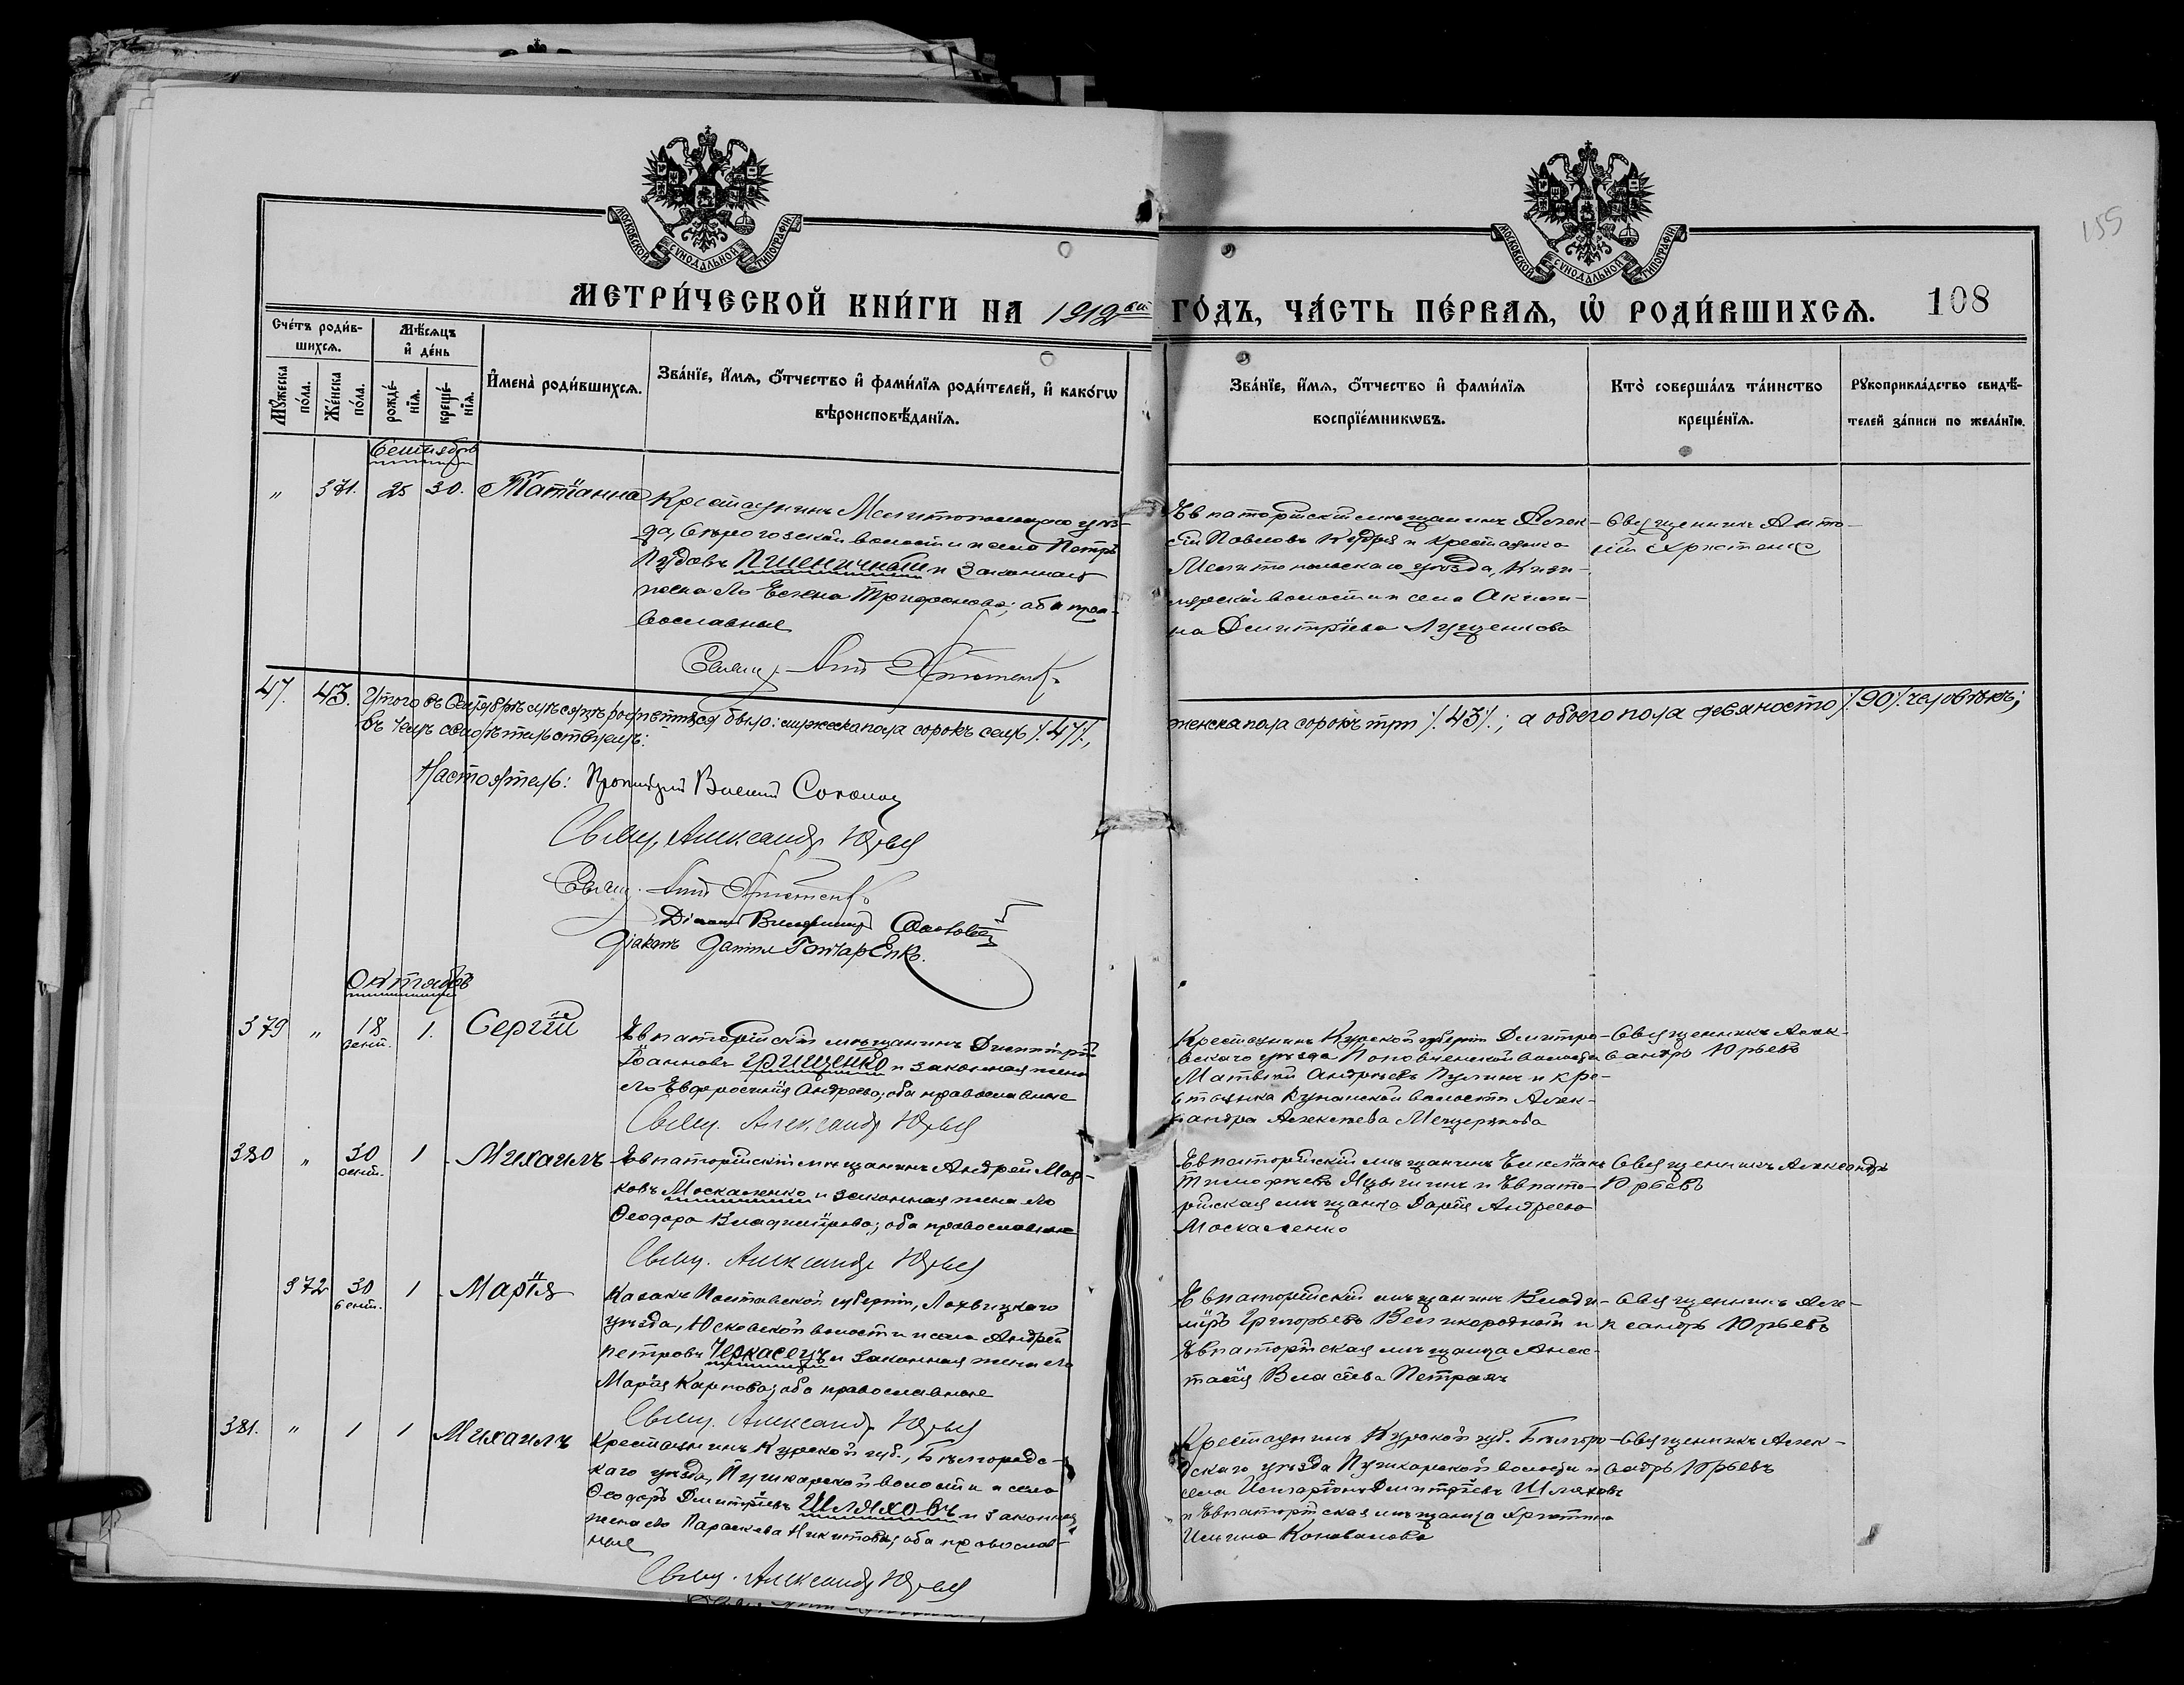 МОСКОВСКОЙ СѴНОДАЛЬНОЙ ТИПОГРАФІИ
МОСКОВСКОЙ СѴНОДАЛЬНОЙ ТИПОГРАФІИ
155
МЕТРИ́ЧЕСКОЙ КНИ́ГИ НА 1912 ГО́ДЪ, ЧА́СТЬ ПЕ́РВАЯ, Ѡ҆ РОДИ́ВШИХСЯ. 108
Сче́тъ роди́в-
шихся.
Мꙋ́жеска по́ла.
Же́нска по́ла.
Мѣ́сяцъ
и҆ де́нь
рожде́-
нїя.
креще́-
нїя.
И҆мена̀ роди́вшихся.
Зва́нїе, и҆́мя, ѻ҆́тчество и҆ фами́лїя роди́телей, и҆ како́гѡ
вѣроисповѣ́данїя.
Зва́нїе, и҆́мя, ѻ҆́тчество и҆ фами́лїя
воспрїе́мникѡвъ.
Кто̀ соверша́лъ та́инство
креще́нїя.
Рꙋкоприкла́дство свидѣ́-
телей за́писи по жела́нїю.
Сентябрь
" 371. 25 30. Татіанна
Крестьянинъ Мелитопольскаго уѣз-
да, Сѣрогозской волости и села Петръ
Пудовъ Пшеничный и законная
жена его Елена Трифонова; оба пра-
вославные
Евпаторійскій мѣщанинъ Алек-
сій Павловъ Кудря и крестьянка
Мелитопольскаго уѣзда,
волости и села Акили-
на Димитріева Лущенкова
Священникъ Анто-
ній Христенко
47. 43. Итого въ Сентябрѣ мѣсяцѣ родившихся было: мужеска пола сорокъ семь /.47./, женска пола сорокъ три /.43./; а обоего пола девяносто /.90./ человѣкъ;
въ чемъ свидѣтельствуемъ:
Настоятель: Протоіерей Соколов
Свящ. Александр Юрьев
Свящ. Ант Христенко
Діаконъ
Діаконъ Даниил ГончарЕнко.
Октябрь
379 " 18 сент. 1. Сергій
Евпаторійскій мѣщанинъ Димитрій
Іоанновъ Грищенко и законная жена
его Евфросинія Андреева; оба православные
Свящ. Александр Юрьев
Крестьянинъ Курской губерніи Дмитрі-
вскаго уѣзда волости
Матвѣй Андреевъ и кре-
стьянка волости Алек-
сандра Алексѣева Мещерякова
Священникъ Алек-
сандръ Юрьевъ
380 " 30 сент. 1 Михаилъ
Евпаторійскій мѣщанинъ Андрей Мар-
ковъ Москаленко и законная жена его
Ѳеодора Владимірова; оба православные
Свящ. Александр Юрьев
Евпаторійскій мѣщанинъ
Тимофѣевъ и Евпато-
рійская мѣщанка Дарія Андреева
Москаленко
Священникъ Александръ
Юрьевъ
372 30 сент. 1 Марія
Казакъ Полтавской губерніи, Лохвицкаго
уѣзда, Юсковской волости и села Андрей
Петровъ Черкасецъ и законная жена его
Марія Карпова; оба православные
Свящ. Александр Юрьев
Евпаторійскій мѣщанинъ Влади-
міръ Григорьевъ Великородный и
Евпаторійская мѣщанка Анас-
тасія Петраки
Священникъ Але-
ксандръ Юрьевъ
381. " 1 1 Михаилъ
Крестьянинъ Курской губ., Бѣлгородс-
каго уѣзда, Пушкарской волости и села
Ѳеодоръ Дмитріевъ Шляховъ и законная
жена его Параскева Никитова; оба православ-
ные
Свящ. Александр Юрьев
Крестьянинъ Курской губ. Бѣлгоро-
дскаго уѣзда Пушкарской волости и
села Иларіонъ Димитріевъ Шляховъ
и Евпаторійская мѣщанка Христина
Ильина Коновалова
Священникъ Алек-
сандръ Юрьевъ